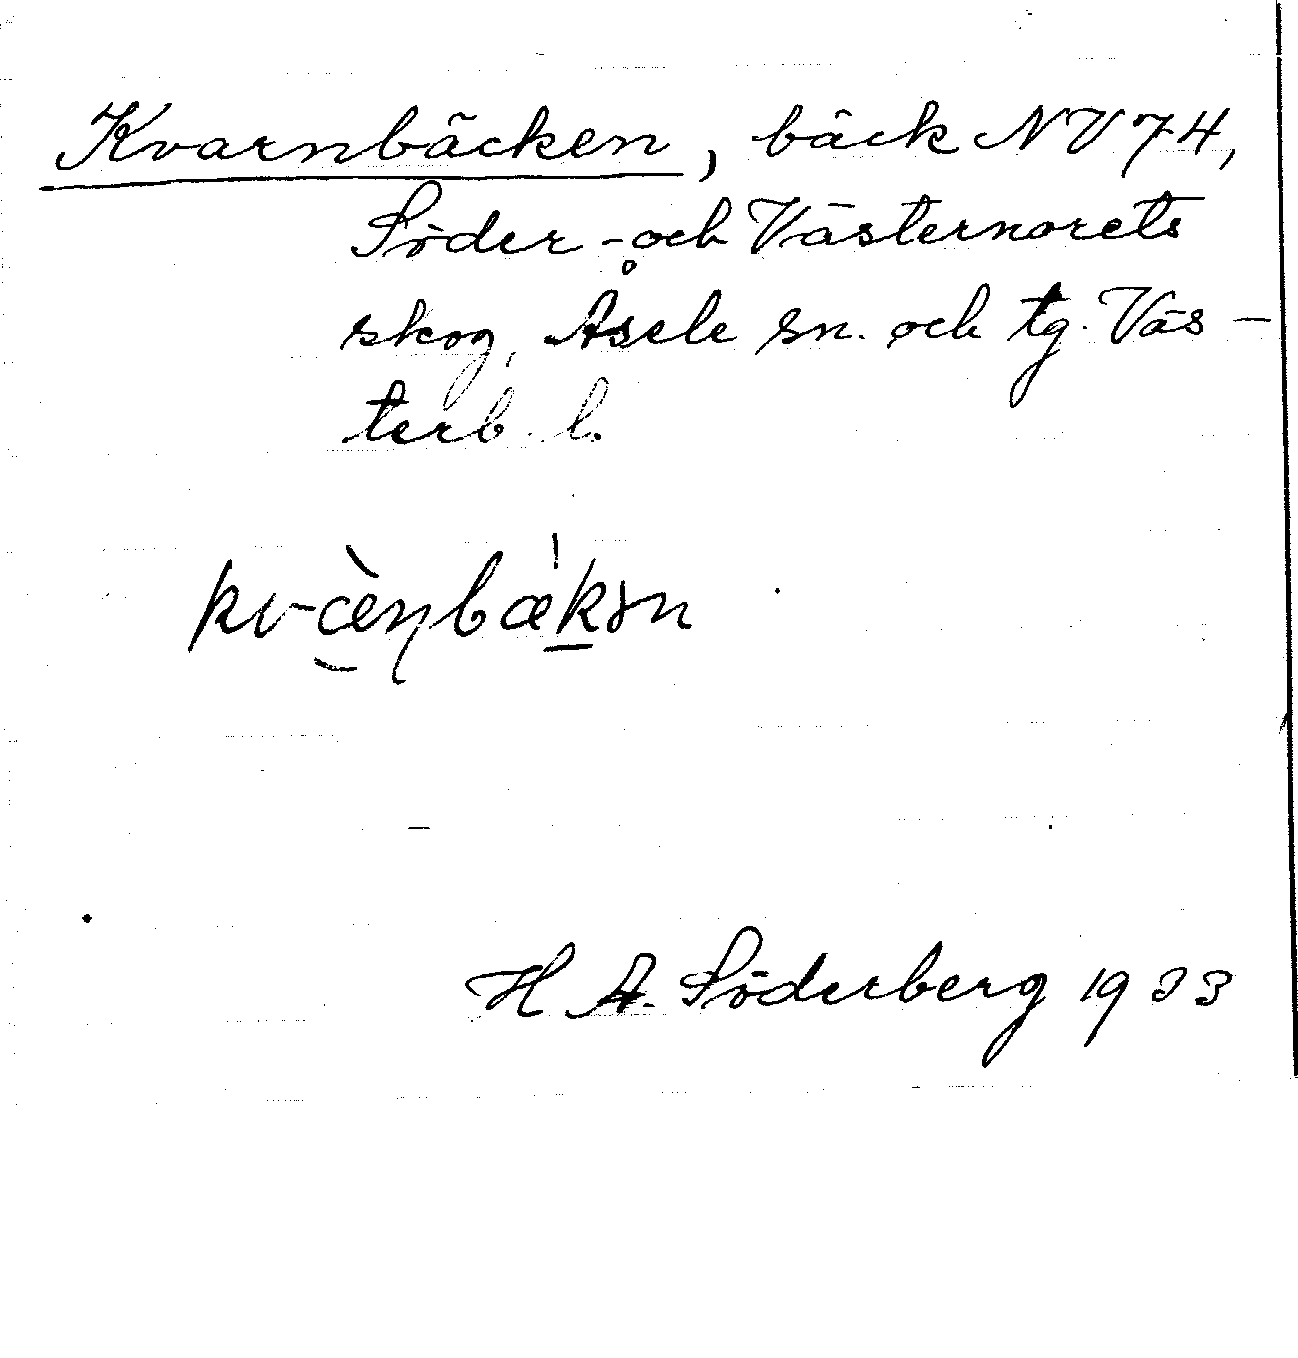 Kvarnbäcken, bäck NV 74,
Söder- och Västernorets
skog, Åsele sn. och tg. Väs-
terb. l.
kvæ̀ṇbæ'kən
H A. Söderberg 1933